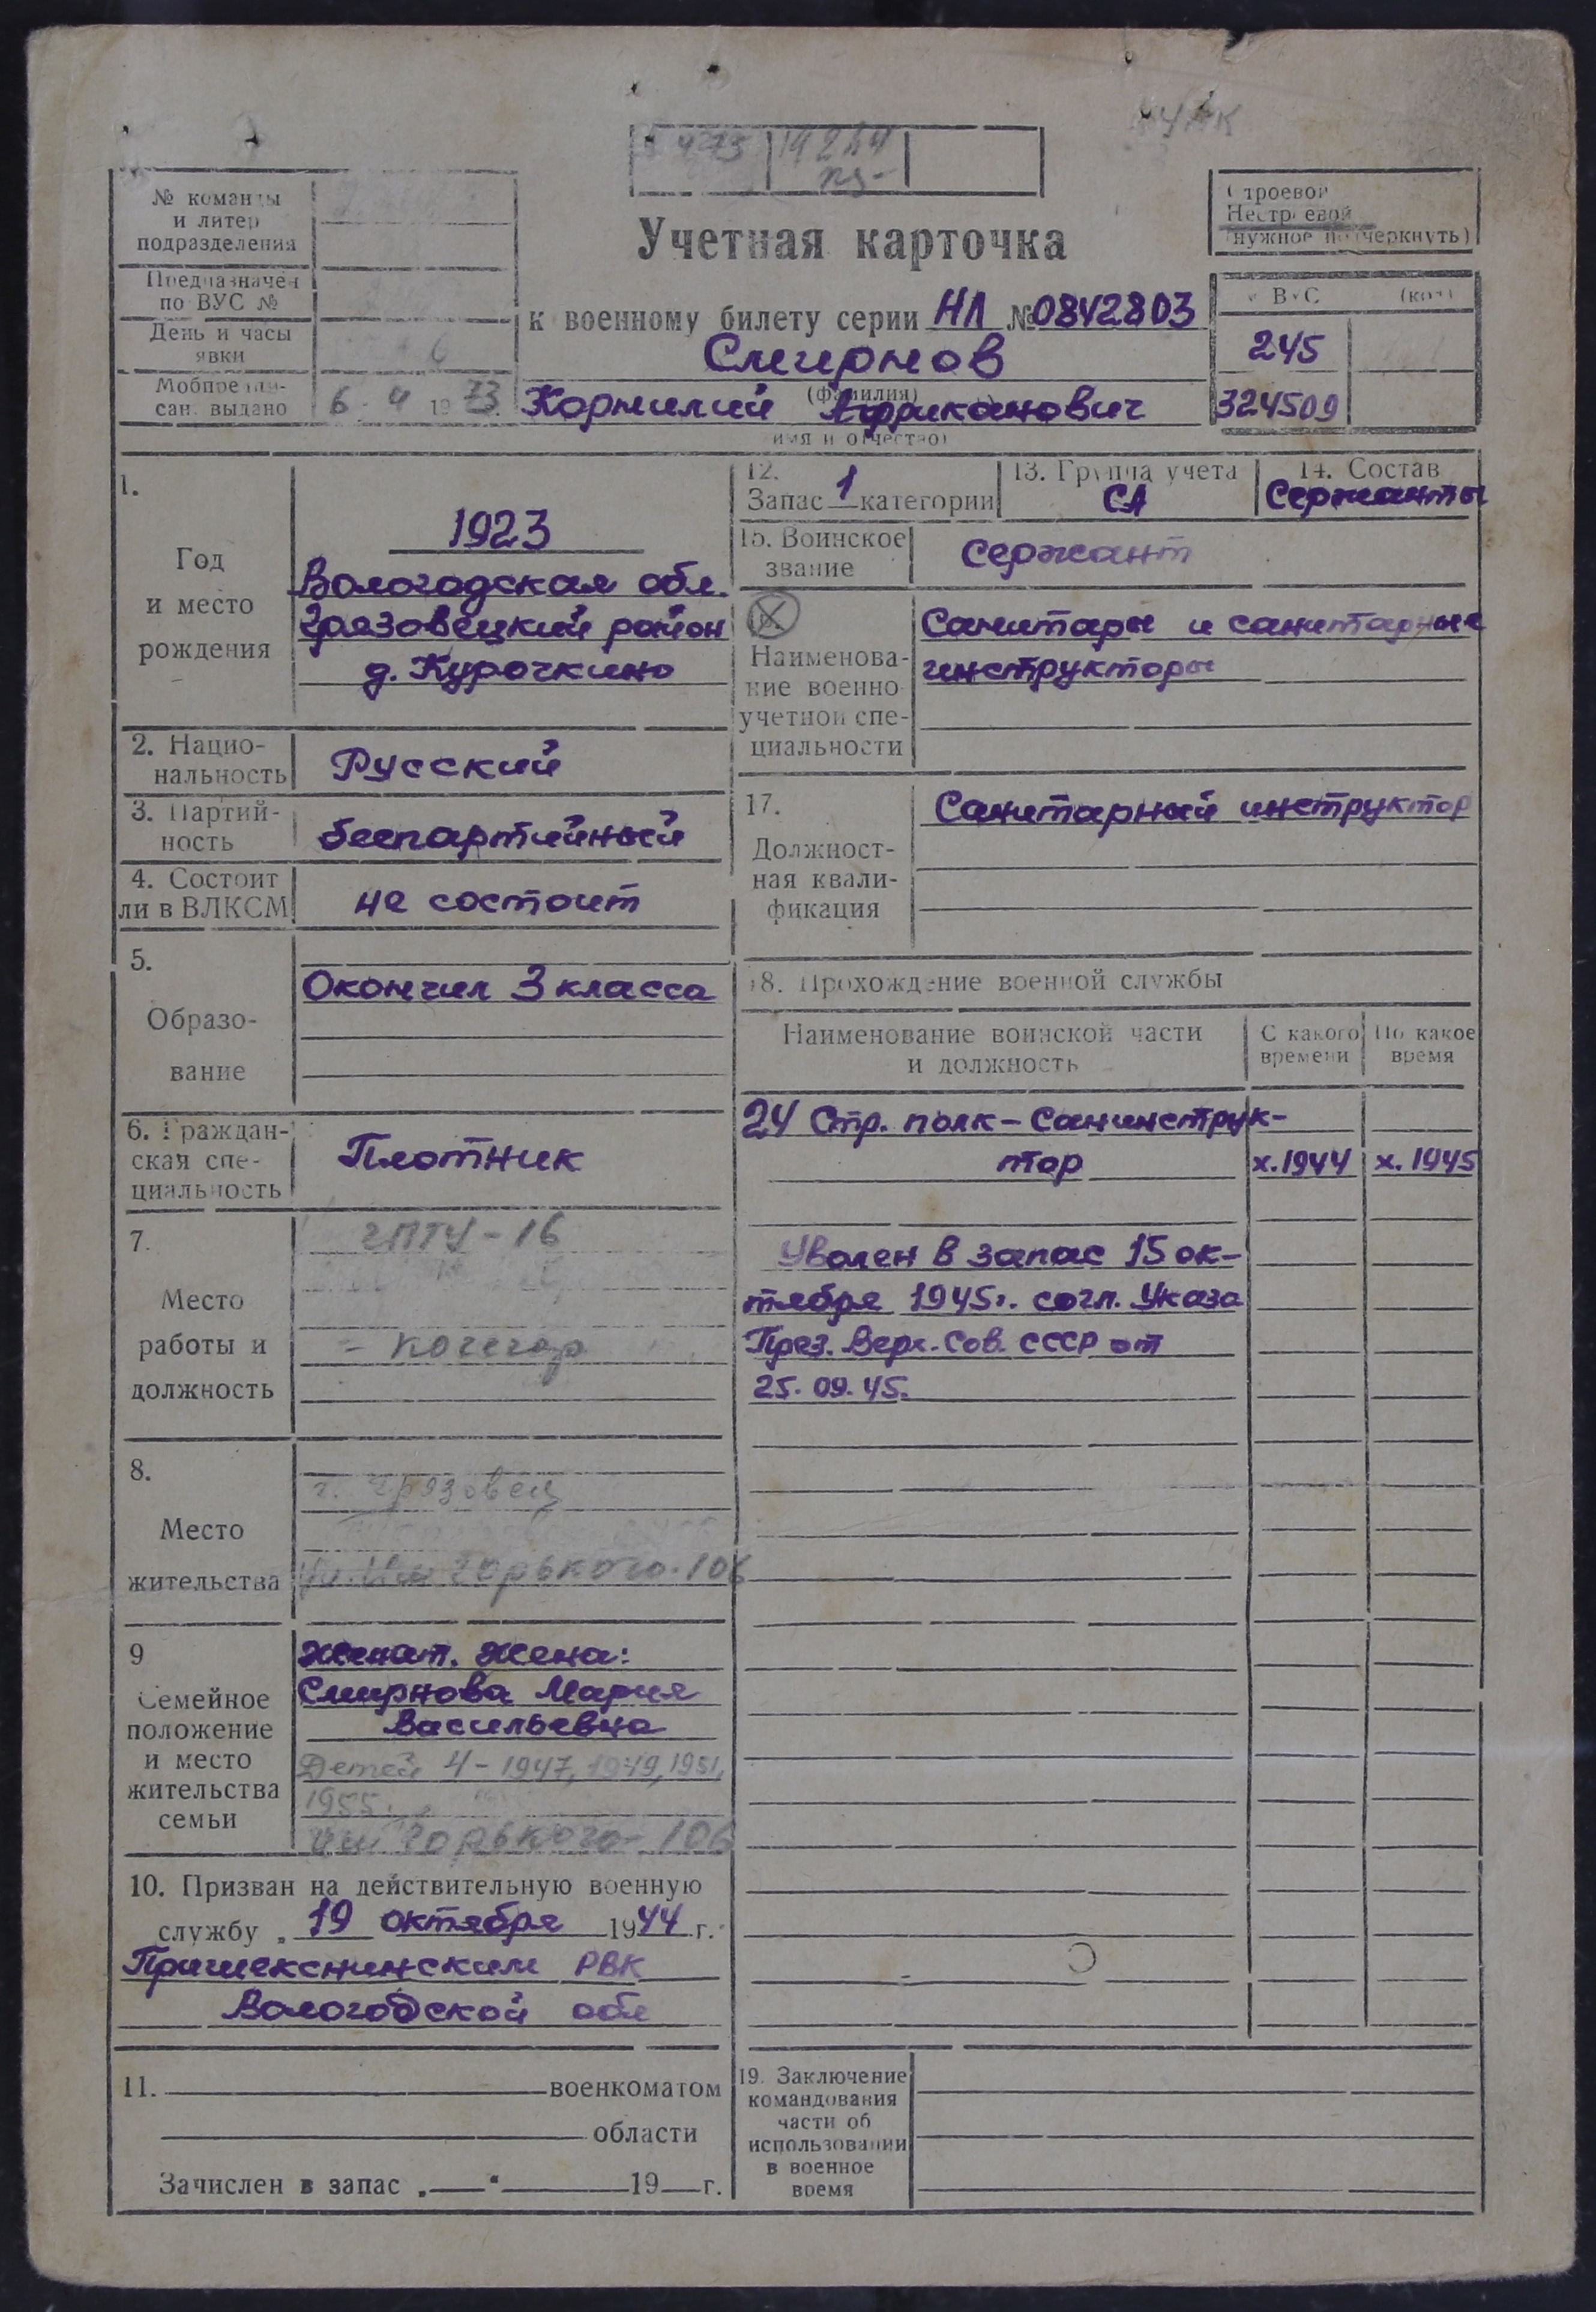 Учетная карточка
к военному билету серии НЛ № 0842803
Смирнов
(фамилия)
Корнилий Африканович
имя и отчество)
№ команды
и литер
подразделения
Предназначен
по ВУС №
День и часы
явки
Мобпредпи-
сан. выдано 6 4 1973
Строевой
Нестроевой
(нужное подчеркнуть)
ВУС (код)
245
324509
1.
Год
и место
рождения
1923
Вологодская обл.
Грязовецкий район
д. Курочкино
2. Нацио-
нальность
Русский
3. Партий-
ность
беспартийный
4. Состоит
ли в ВЛКСМ
не состоит
5.
Образо-
вание
Окончил 3 класса
6. Граждан-
ская спе-
циальность
Плотник
7.
Место
работы и
должность
ГПТУ-16
- кочегар
8.
Место
жительства
г. Грязовец
Горького-106
9
Семейное
положение
и место
жительства
семьи
Женат. Жена:
Смирнова Мария
Васильевна
Детей 4 - 1947, 1949, 1951,
1955.
Горького-106
10. Призван на действительную военную
службу „ 19 октября 1944 г.
Пришекснинским РВК
Вологодской обл
11. военкоматом
области
Зачислен в запас „ “ 19 г.
12.
Запас 1 категории
13. Группа учета
СА
14. Состав
Сержанты
15. Воинское
звание
сержант
Наименова-
ние военно
учетной спе-
циальности
Санитары и санитарные
инструкторы
17.
Должност-
ная квали-
фикация
Санитарный инструктор
18. Прохождение военной службы
Наименование воинской части
и должность
С какого
времени
По какое
время
24 Стр. полк - Санинструк-
тор х.1944 х.1945
Уволен в запас 15 ок-
тября 1945г. согл. Указа
През. Верх. Сов. СССР от
25.09.45.
19. Заключение
командования
части об
использовании
в военное
время